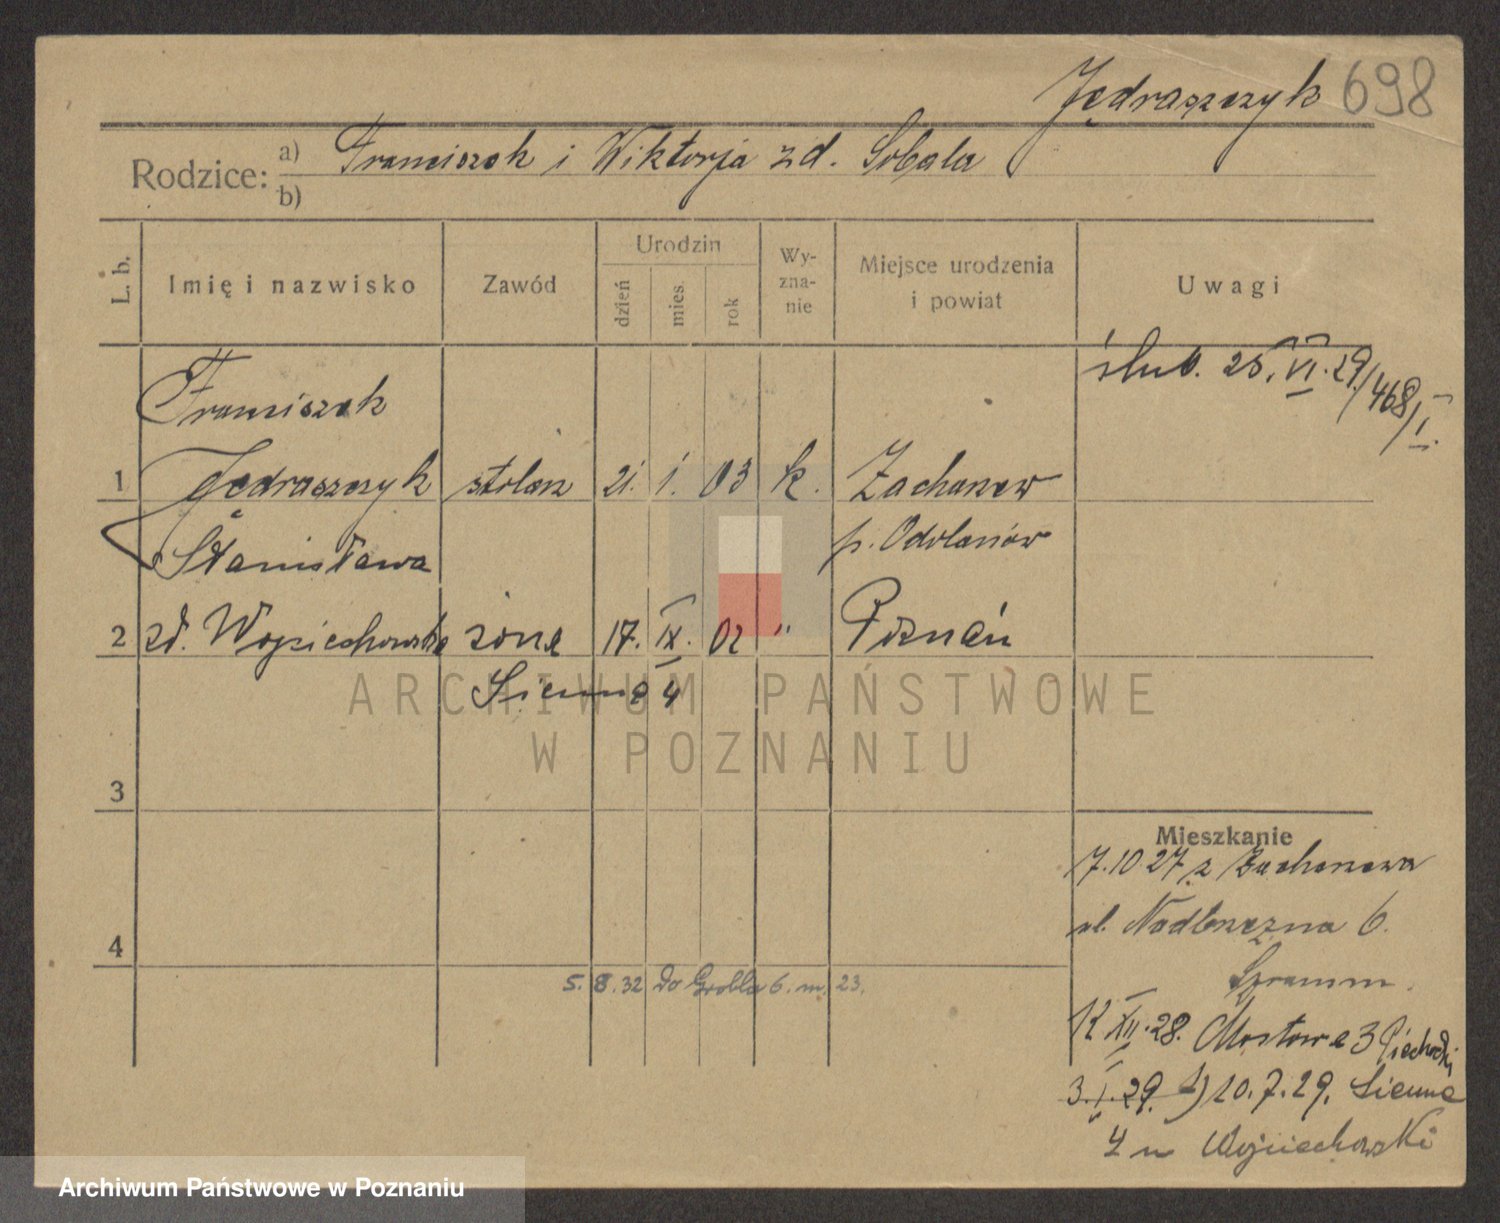 Jędraszczyk 698
Rodzice: a) Franciszek i Wiktorja zd. Sobala
b)
L. b. Imię i nazwisko Zawód Urodzin dzień mies. rok Wyznanie Miejsce urodzenia i powiat Uwagi
ślub. 25.VI.29/468/I.
Franciszek
1 Jędraszczyk stolarz 21. 1. 03 k. Zacharzew
Stanisława p. Odolanów
2 zd. Wojciechowska żona 17. IX. 02 " Poznań
Sienna 4
ARCHIWUM PAŃSTWOWE
W POZNANIU
3
Mieszkanie
7.10 27 z Zacharzewa
4 ul. Nadbrzeżna 6.
5. 8. 32 Do Grobla 6. m. 23.
XII.28. Mostowa 3
3.I.29. 1) 20.7.29. Sienna
4 u Wojciechowski
Archiwum Państwowe w Poznaniu